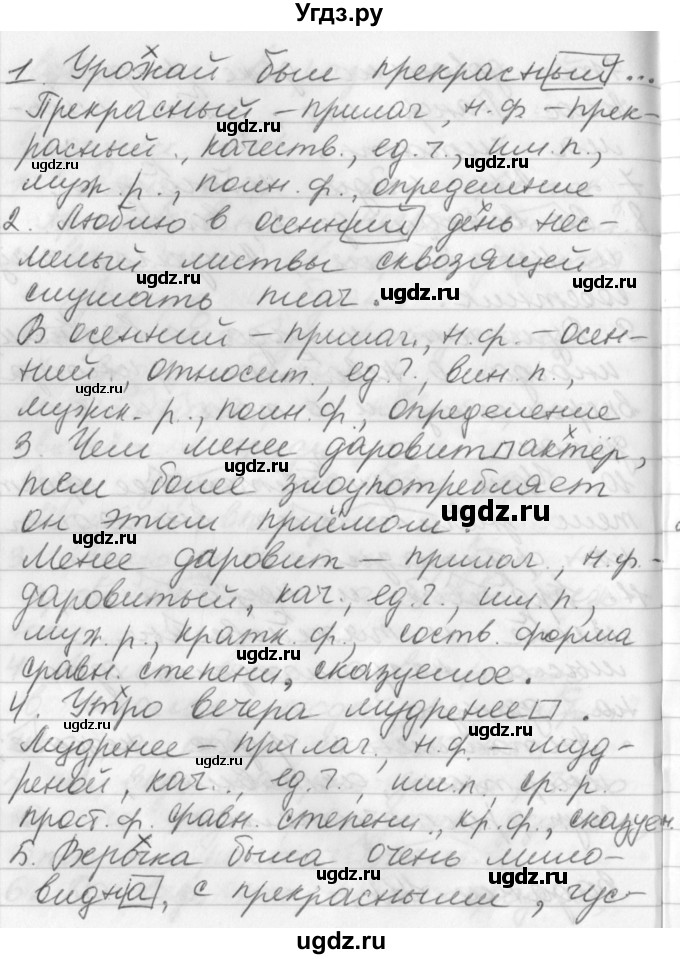 Угдз.ру
1. Урожай был прекрасный...
Прекрасный – прилаг., н.ф. – прек-
расный., качеств., ед.ч., им.п.,
муж.р., полн.ф., определение
2. Люблю в осенний день нес-
мелый листвы сквозящей
слушать плач.
В осенний – прилаг., н.ф. – осен-
ний, относит., ед.ч., вин.п.,
мужск. р., полн.ф., определение
3. Чем менее даровит актёр,
тем более злоупотребляет
он этим приёмом.
Менее даровит – прилаг., н.ф. -
даровитый, кач., ед.ч., им.п.,
муж.р., кратк.ф., составн. форма
сравн. степени, сказуемое.
4. Утро вечера мудренее.
Мудренее – прилаг., н.ф. – муд-
реной, кач., ед.ч., им.п., ср.р.
прост.ф. сравн. степени, кр.ф., сказуем.
5. Верочка была очень мило-
видна, с прекрасными, гус-
ugdz.ru